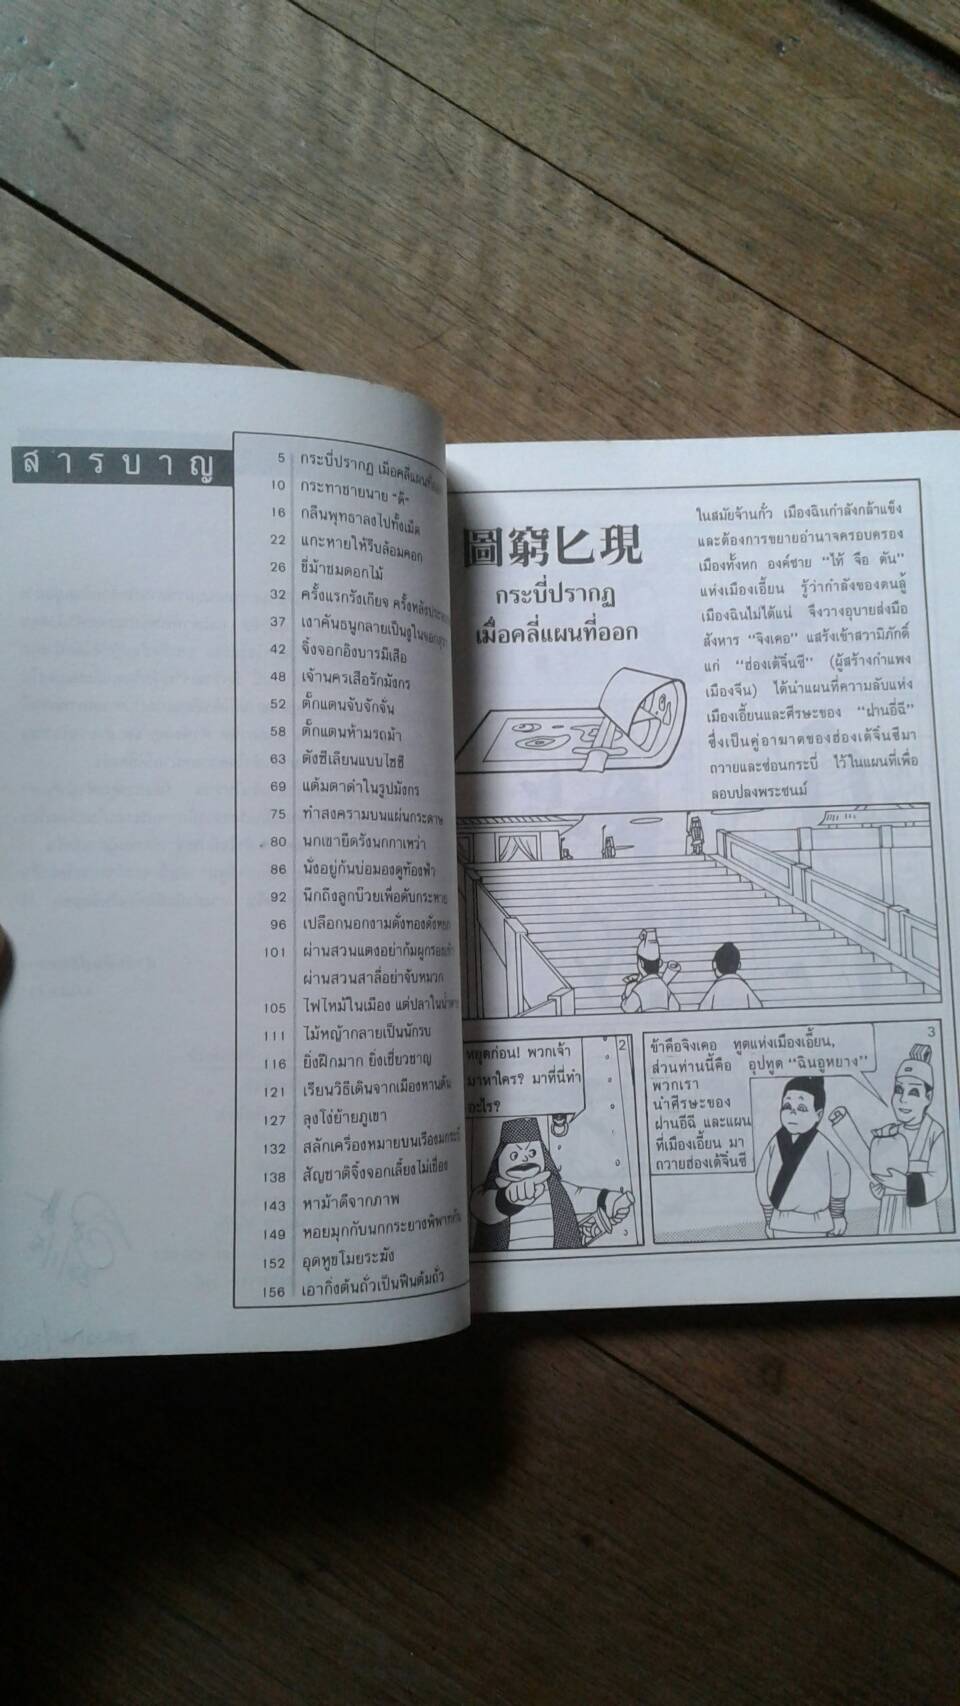 สารบาญ
5 กระบี่ปรากฏ เมื่อคลี่แผนที่ออก
10 กระทาชายนาย "ดี"
16 กลืนพุทธาลงไปทั้งเม็ด
22 แกะหายให้รีบล้อมคอก
26 ขี่ม้าชมดอกไม้
32 ครั้งแรกรังเกียจ ครั้งหลัง
37 เงาคันธนูกลายเป็นงูในจอกสุรา
42 จิ้งจอกอิงบารมีเสือ
48 เจ้านครเสือรักมังกร
52 ตั๊กแตนจับจักจั่น
58 ตั๊กแตนห้ามรถม้า
63 ตังซีเลียนแบบไซซี
69 แต้มตาดำในรูปมังกร
75 ทำสงครามบนแผ่นกระดาษ
80 นกเขายึดรังนกกาเหว่า
86 นั่งอยู่ก้นบ่อมองดูท้องฟ้า
92 นึกถึงลูกบ๊วยเพื่อดับกระหาย
96 เปลือกนอกงามดั่งทองดังหยก
101 ผ่านสวนแตงอย่าก้มผูกรองเท้า
ผ่านสวนสาลี่อย่าจับหมวก
105 ไฟไหม้ในเมือง แต่ปลาในน้ำตาย
111 ไม้หญ้ากลายเป็นนักรบ
116 ยิ่งฝึกมาก ยิ่งเชี่ยวชาญ
121 เรียนวิธีเดินจากเมืองหานตัน
127 ลุงโง่ย้ายภูเขา
132 สลักเครื่องหมายบนเรืองมกระบี่
138 สัญชาติจิ้งจอกเลี้ยงไม่เชื่อง
143 หาม้าดีจากภาพ
149 หอยมุกกับนกกระยางพิพาทกัน
152 อุดหูขโมยระฆัง
156 เอากิ่งต้นถั่วเป็นฟืนต้มถั่ว
圖窮匕現
กระบี่ปรากฏ
เมื่อคลี่แผนที่ออก
ในสมัยจ้านกั๋ว เมืองฉินกำลังกล้าแข็ง
และต้องการขยายอำนาจครอบครอง
เมืองทั้งหก องค์ชาย "ไท้ จือ ตัน"
แห่งเมืองเอี้ยน รู้ว่ากำลังของตนสู้
เมืองฉินไม่ได้แน่ จึงวางอุบายส่งมือ
สังหาร "จิงเคอ" แสร้งเข้าสวามิภักดิ์
แก่ "ฮ่องเต้จิ๋นซี" (ผู้สร้างกำแพง
เมืองจีน) ได้นำแผนที่ความลับแห่ง
เมืองเอี้ยนและศีรษะของ "ฝานอี๋ฉี"
ซึ่งเป็นคู่อาฆาตของฮ่องเต้จิ๋นซีมา
ถวายและซ่อนกระบี่ ไว้ในแผนที่เพื่อ
ลอบปลงพระชนม์
2
หยุดก่อน! พวกเจ้า
มาหาใคร? มาที่นี่ทำ
อะไร?
3
ข้าคือจิงเคอ ทูตแห่งเมืองเอี้ยน,
ส่วนท่านนี้คือ อุปทูต "ฉินอูหยาง"
พวกเรา
นำศีรษะของ
ฝานอี๋ฉี และแผน
ที่เมืองเอี้ยน มา
ถวายฮ่องเต้จิ๋นซี